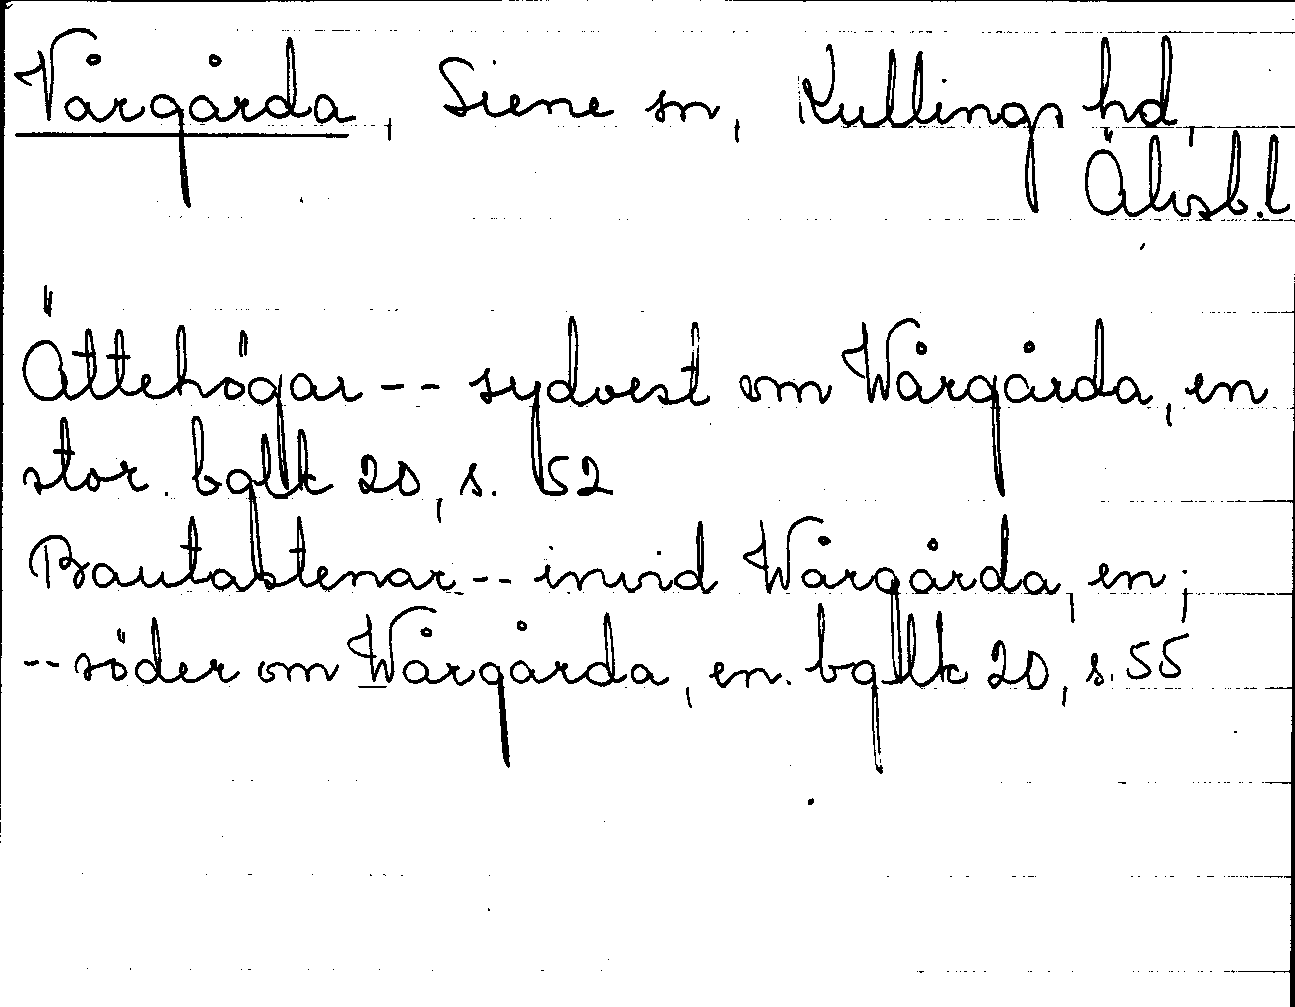 Vårgårda, Siene sn, Kullings hd,
Älvsb.l
Ättehögar -- sydvest om Wårgårda, en
stor. bglk 20, s. 52
Bautastenar -- invid Wårgårda, en;
-- söder om Wårgårda, en. bglk 20, s. 55